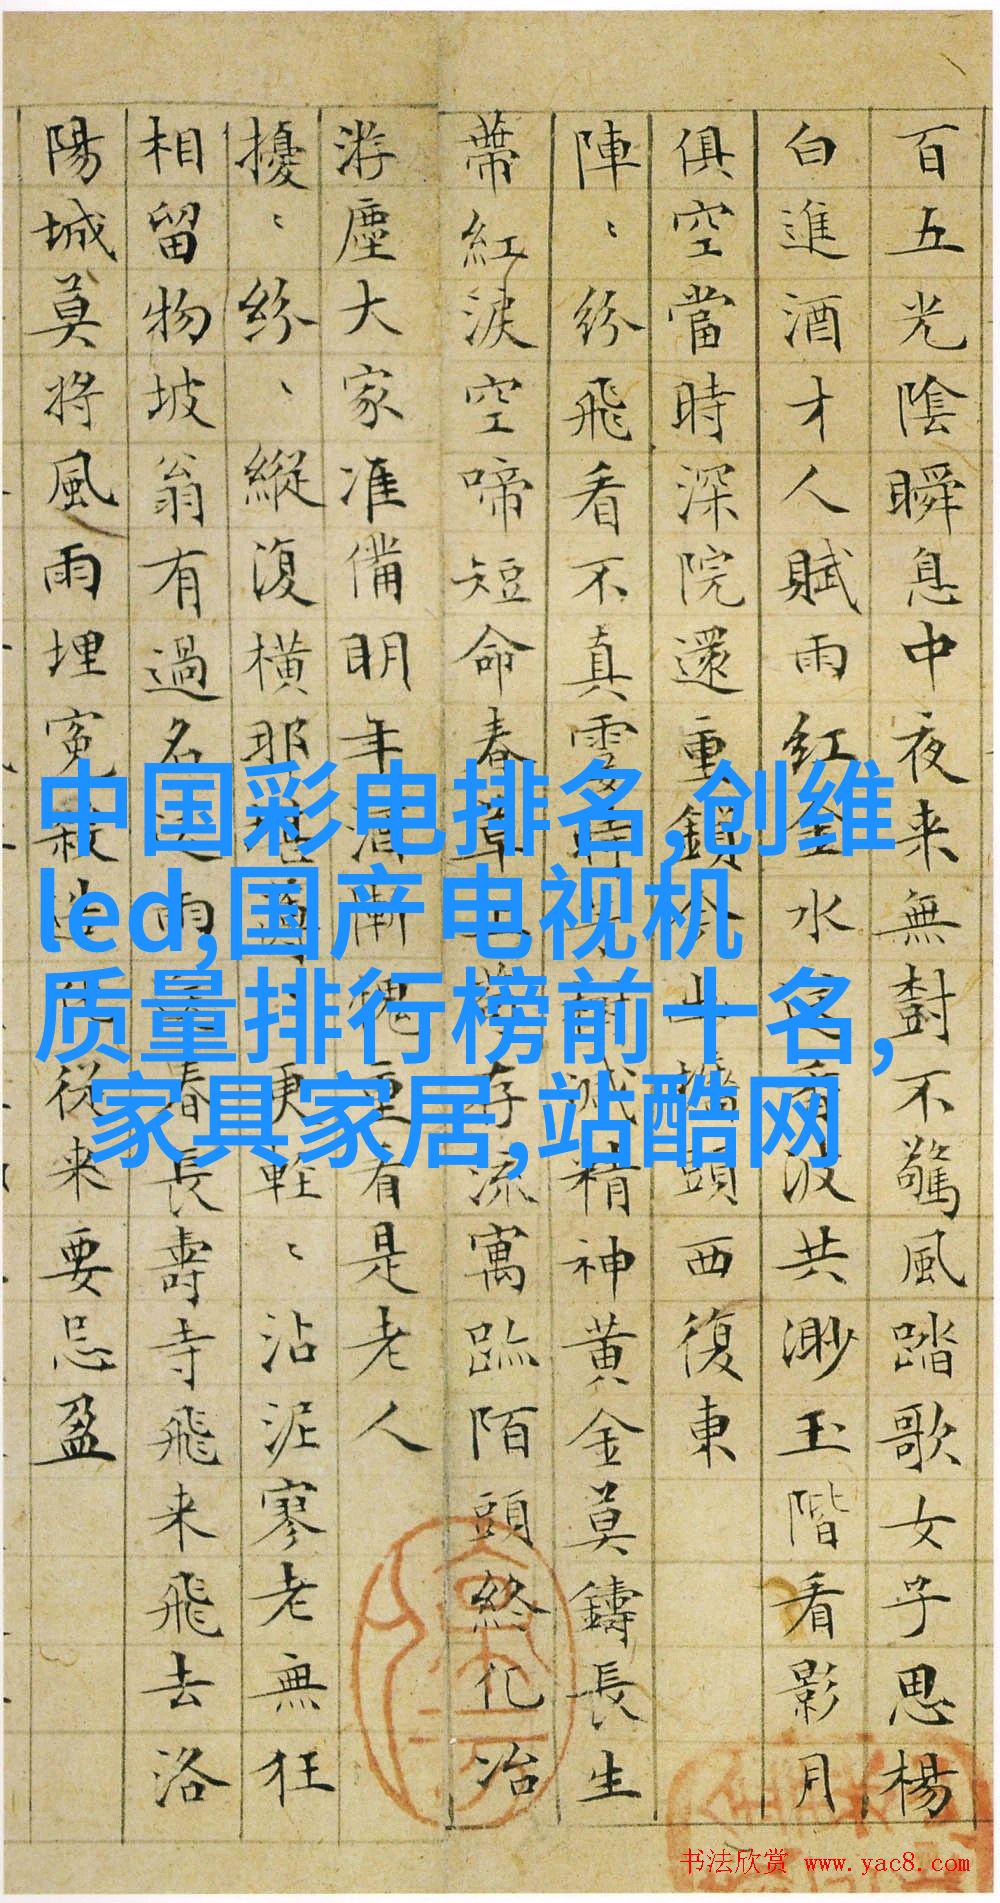 百五光陰瞬息中夜来無對不驚風踏歌女子思楊
白進酒才人賦雨紅金水看波共渺玉階看影月
俱空當時深院還重鎖牆頭西復東
陣、紛飛看不真霎時減精神黃金莫鑄長生
蒂紅淚空啼短命春草存流寓跡陌頭終化冶
游塵大家准備明年酒慚愧重有是老人
擾、紛、縱復橫那堪更輕、沾泥寥老無狂
相留物坡翁有過名雨春長壽寺飛来飛去洛
陽城莫將風雨埋冤殺造化従来要忌盈
中国彩电排名,创维
led,国产电视机
质量排行榜前十名,
家具家居,站酷网
书法欣赏 www.yac8.com